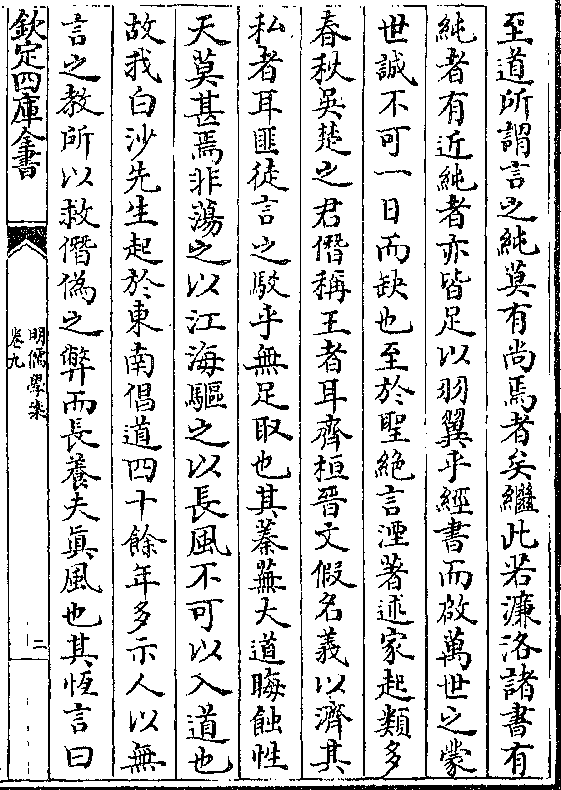 至道所謂言之純莫有尚焉者矣繼此若濂洛諸書有
純者有近純者亦皆足以羽翼乎經書而啟萬世之蒙
世誠不可一日而缺也至於聖絶言湮著述家起類多
春秋吳楚之君僭稱王者耳齊桓晉文假名義以濟其
私者耳匪徒言之駁乎無足取也其蓁蕪大道晦蝕性
天莫甚焉非蕩之以江海驅之以長風不可以入道也
故我白沙先生起於東南倡道四十餘年多示人以無
言之教所以救僭偽之弊而長養夫真風也其恆言曰
欽定四庫全書
明儒學案
卷九
二